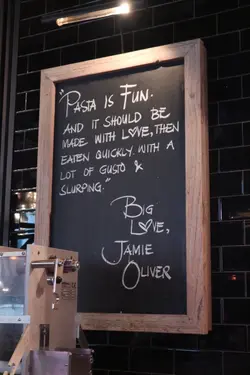 "PASTA IS FUN.
AND IT SHOULD BE
MADE WITH LOVE, THEN
EATEN QUICKLY WITH A
LOT OF GUSTO &
SLURPING."
BIG
LOVE,
JAMIE
OLIVER